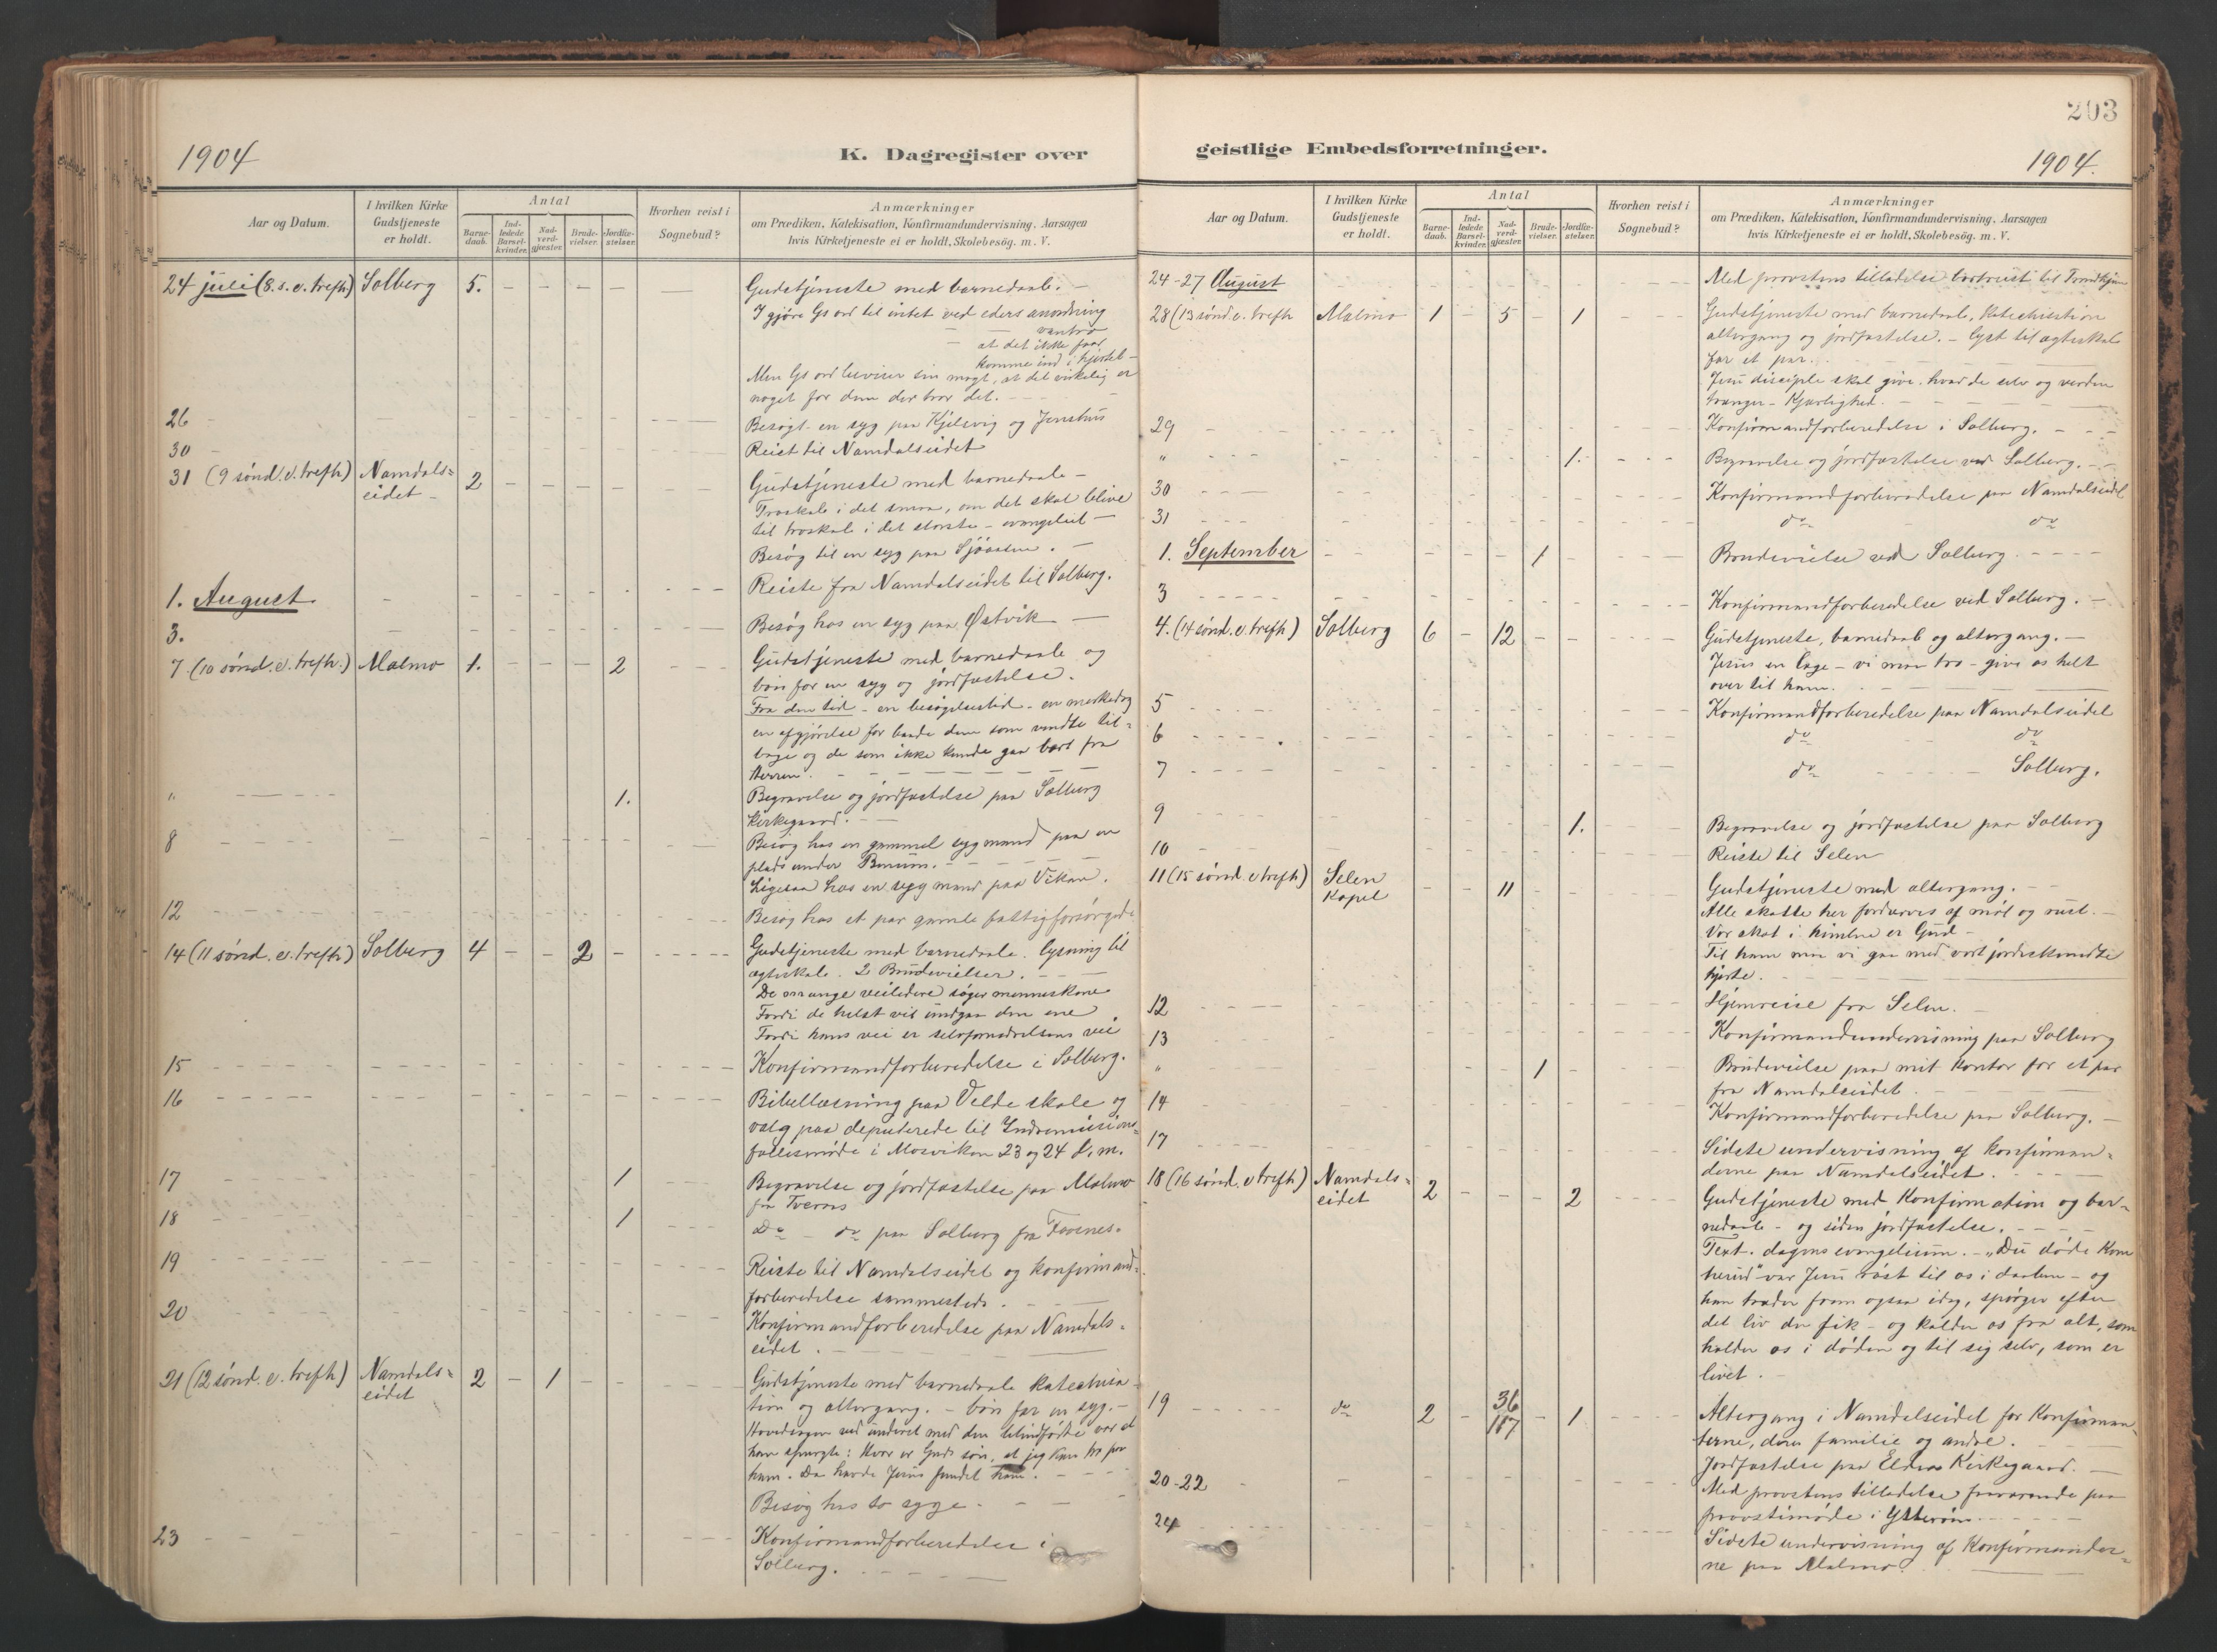 1904
K. Dagregister over
Aar og Datum.
I hvilken Kirke
Gudstjeneste
er holdt.
Antal
Barne-
daab.
Ind-
ledede
Barsel-
kvinder.
Nad-
verd-
gjæster.
Brude-
vielser.
Jordfæ-
stelser.
Hvorhen reist i
Sognebud?
Anmærkninger
om Prædiken, Katekisation, Konfirmandundervisning, Aarsagen
hvis Kirketjeneste ei er holdt, Skolebesøg. m. V.
24 juli (8. s. e. trefh.) Solberg 5. Gudstjeneste med barnedaab. -
I gjøre Gs ord til intet ved eders anordning
- - vantro
- at det ikke faar
komme ind i hjertet -
Men Gs ord beviser sin magt, at det virkelig er
noget for dem der tror det.
26 Besøgt en syg paa Kjelvig og Jenshus
30 Reist til Namdalseidet
31 (9 sønd. e. trefh) Namdals=
eidet 2 Gudstjeneste med barnedaab -
Troskab i det smaa, om det skal blive
til troskab i det største - evangeliet -
Besøg til en syg paa Sjøaasen. -
1. August Reiste fra Namdalseidet til Solberg.
3. Besøg hos en syg paa Østvik -
7 (10 sønd. e. trefh.) Malmo 1. 2 Gudstjeneste med barnedaab og
bøn for en syg og jordfæstelse.
Fra den tid - en besøgelsestid - en merkedag
en afgjørelse for baade dem som vendte til=
bage og de som ikke kunde gaa bort fra
Herren.
" 1. Begravelse og jordfæstelse paa Solberg
Kirkegaard.
8 Besøg hos en gammel syg mand paa en
plads under
Ligesaa hos en syg mand paa Vikan.
12 Besøg hos et par gamle fattigforsørgede
14 (11 sønd. e. trefh) Solberg 4 2 Gudstjeneste med barnedaab. lysning til
ægteskab. 2 Brudevielser.
De mange veiledere søger menneskene
Fordi de helst vil undgaa den ene
Fordi hans vei er selvfornedrelsens vei
15 Konfirmandforberedelse i Solberg.
16 Bibellæsning paa Velde skole og
valg paa deputerede til Indremissions=
fællesmøde i Mosviken 23 og 24 d. m.
17 1 Begravelse og jordfæstelse paa Malmo
fra Tvernes
18 1 Do - do paa Solberg fra
19 Reiste til Namdalseidet og konfirmand=
forberedelse sammesteds.
20 Konfirmandforberedelse paa Namdals=
eidet.
21 (12 sønd. e. trefh) Namdals=
eidet 2 1 Gudstjeneste med barnedaab katechisa
tion og altergang. - bøn for en syg. -
Hovedsagen ved underet med den blindfødte var at
han spurgte: Hvor er Guds søn, at jeg kan tro paa
ham. Da havde Jesus fundet ham.
Besøg hos to syge.
23 Konfirmandforberedelse i
Solberg.
203
geistlige Embedsforretninger.
1904.
Aar og Datum.
I hvilken Kirke
Gudstjeneste
er holdt.
Antal
Barne-
daab.
Ind-
ledede
Barsel-
kvinder.
Nad-
verd-
gjæster.
Brude-
vielser.
Jordfæ-
stelser.
Hvorhen reist i
Sognebud?
Anmærkninger
om Prædiken, Katekisation, Konfirmandundervisning, Aarsagen
hvis Kirketjeneste ei er holdt, Skolebesøg. m. V.
24-27 August Med provstens tilladelse bortreist til Trondhjem
28 (13 sønd. e. trefh Malmo 1 5 1 Gudstjeneste med barnedaab, Katechisation
altergang og jordfæstelse. - lyst til ægteskab
for et par.
Jesu disciple skal give, hvad de selv og verden
trænger - Kjærlighed.
29 Konfirmandforberedelse i Solberg.
" 1. Begravelse og jordfæstelse ved Solberg.
30 Konfirmandforberedelse paa Namdalseidet
31 do do
1. September 1 Brudevielse ved Solberg.
3 Konfirmandforberedelse ved Solberg. -
4. (14 sønd. e. trefh) Solberg 6 12 Gudstjeneste, barnedaab og altergang. -
Jesus en læge - vi maa tro - give os helt
over til ham.
5 Konfirmandforberedelse paa Namdalseidet
6 do do
7 do Solberg.
9 1. Begravelse og jordfæstelse paa Solberg
10 Reiste til Selen
11 (15 sønd. e trefh) Selen
Kapel 11 Gudstjeneste med altergang.
Alle skatte her fordærves af møl og rust. -
Vor skat i himlene er Gud -
Til ham maa vi gaa med vort jordiskvendte
hjerte.
12 Hjemreise fra Selen.
13 Konfirmandundervisning paa Solberg
" 1 Brudevielse paa mit kontor for et par
fra Namdalseidet.
14 Konfirmandforberedelse paa Solberg. -
17 Sidste undervisning af konfirman=
derne paa Namdalseidet.
18 (16 sønd. e trefh) Namdals=
eidet 2 2 Gudstjeneste med Konfirmation og bar=
nedaab - og siden jordfæstelse.
Text. dagens evangelium. - "Du døde Kom
herud" var Jesu røst til os i daaben - og
han træder frem ogsaa idag, spørger efter
det liv du fik - og kalder os fra alt, som
holder os i døden og til sig selv, som er
livet.
19 do 2 36
117 1 Altergang i Namdalseidet for Konfirman
terne, deres familie og andre.
Jordfæstelse paa Elden Kirkegaard. -
20-22 Med provstens tilladelse fraværende paa
provstimøde i Ytterøen.
24 Sidste undervisning af Konfirmander=
ne paa Malmo.